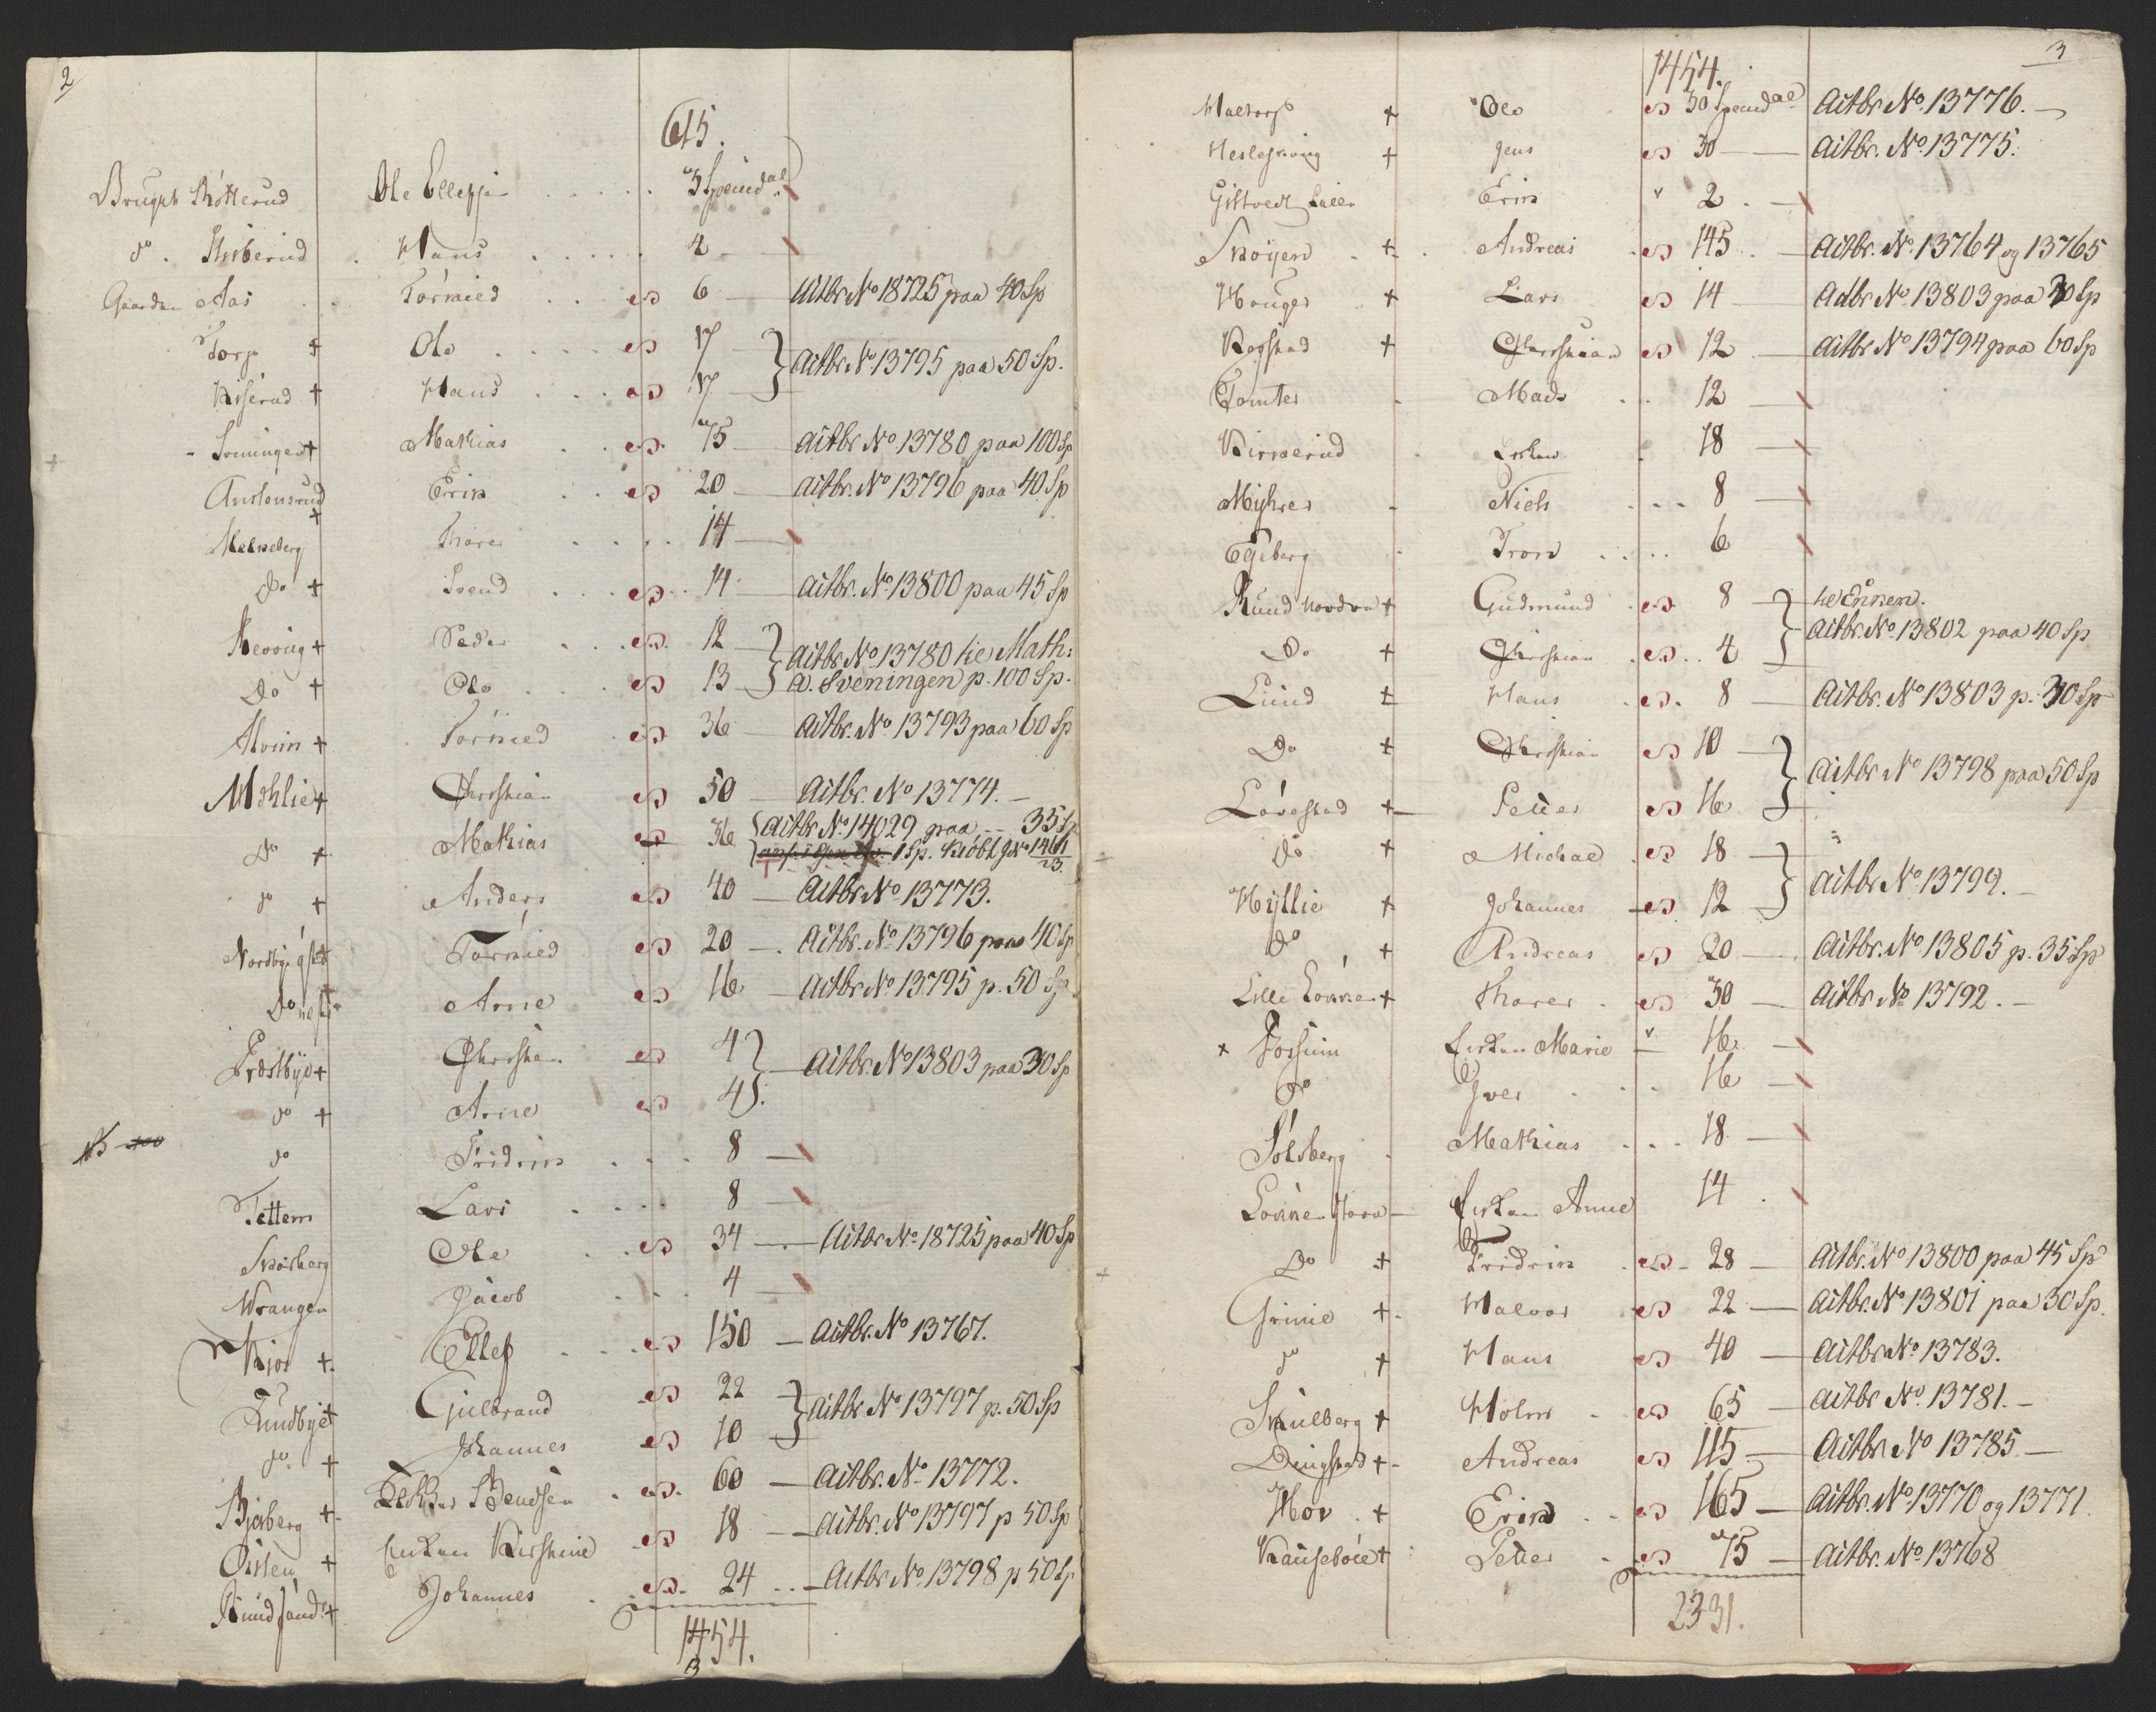 2
615.
Bruget Støtterud Ole Ellefsen 3 Speciedal
do Stuberud Hans 4
Gaarden Aas Tormod 6 Actbr No 18725 paa 40 Sp
Torp + Ole 17
Actbr No 13795 paa 50 Sp.
Riiserud + Hans 17
Sveningen + Mathias 75 Actbr No 13780 paa 100 Sp
Austensrud + Erik 20 Actbr. No 13796 paa 40 Sp
Melneberg Thorer 14
Do + Svend 14 Actbr. No 13800 paa 45 Sp
Revoug + Peder 12 Actbr No 13780 se Math:
Do + Ole 13 A. Sveningen p. 100 Sp.
Alvim + Tormod 36 Actbr. No 13793 paa 60 Sp
Mohlie + Christian 50 Actbr. No 13774.
Do + Mathias 36 Actbr No 14029 paa 35 Sp
1 Sp. Kiøbt J No 1461/23.
do + Anders 40 Actbr No 13773.
Nordbye + Tormod 20 Actbr. No 13796 paa 40 Sp
Do Arne 16 Actbr No 13795 p. 50 Sp
Præstbye + Christian 4
Actbr. No 13803 paa 30 Sp
do + Arne 4
do Fridrik 8
Tettem Lars 8
Skorberg Ole 34 Actbr No 18725 paa 40 Sp
Wrangen Jacob 4
Kjos + Ellef 150 Actbr. No 13767.
Rudbye + Gulbrand 22
Actbr No 13797 p. 50 Sp
do + Johannes 10
Bjerberg + 60 Actbr. No 13772.
Østen + Enken Kirstine 18 Actbr. No 13797 p 50 Sp
Rund + Johannes 24 Actbr No 13798 p 50 Sp
1454.
3
1454.
Haltorp + Ole 30 Speciedal Actbr No 13776.
Heslegroug + Jens 30 Actbr. No 13775.
Giltvedt Erik 2
Skøyen + Andreas 145 Actbr. No 13764 og 13765
Houger + Lars 14 Actbr No 13803 paa 30 Sp
Rogstad + Christian 12 Actbr No 13794 paa 60 Sp
Tomter Mads 12
Kirkerud Enken 18
Myhrer Niels 8
Egeberg Tron 6
Ruud nordre + Gudmund 8
Actbr. No 13802 paa 40 Sp
Do + Christian 4
Lund + Hans 8 Actbr. No 13803 p. 30 Sp
Do + Christian 10
Actbr No 13798 paa 50 Sp
Løvestad + Peder 16
Do + Michael 18
Actbr No 13799.
Hyllie + Johannes 12
Do + Andreas 20 Actbr. No 13805 p. 35 Sp
Lille Lønne + Thorer 30 Actbr No 13792.
+ Fossum Enken Marie 16
Do Iver 16
Solberg Mathias 18
Lønne store Enken Anne 14
Do + Fridrik 28 Actbr. No 13800 paa 45 Sp
Grinie + Halvor 22 Actbr. No 13801 paa 30 Sp.
do + Hans 40 Actbr No 13783.
Skulberg + Holm 65 Actbr No 13781.
Dingstad + Andreas 115 Actbr No 13785
Hov + Erik 165 Actbr. No 13770 og 13771.
+ Peder 75 Actbr. No 13768
2331.